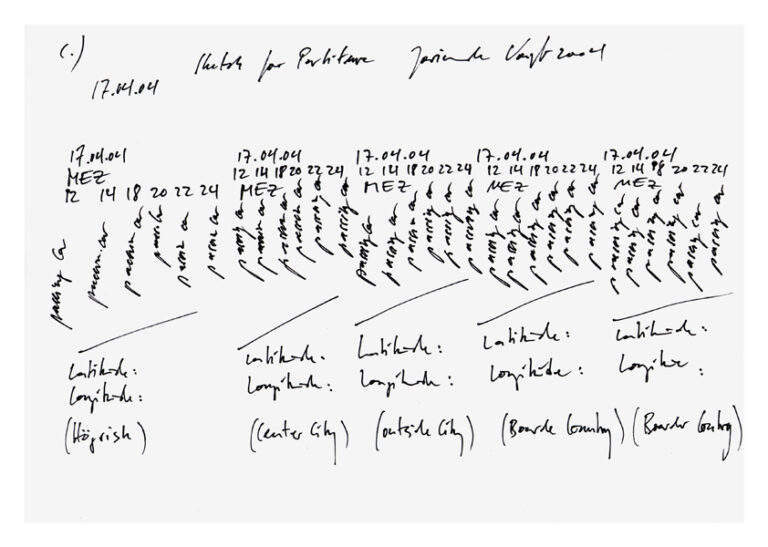 C.)
Sketch for Partiture Jorinde Voigt 2004
17.04.04
17.04.04 17.04.04 17.04.04 17.04.04 17.04.04
MEZ
12 14 18 20 22 24 12 14 18 20 22 24 12 14 18 20 22 24 12 14 18 20 22 24 12 14 18 20 22 24
MEZ MEZ MEZ MEZ
passing car passing car passing car passing car passing car passing car passing car passing car passing car passing car passing car passing car passing car passing car passing car passing car passing car passing car passing car passing car passing car passing car passing car passing car passing car passing car passing car passing car passing car passing car
Latitude: Latitude: Latitude: Latitude: Latitude:
Longitude: Longitude: Longitude: Longitude: Longitude:
(Center City) (outside City) (Boarder Country) (Boarder Country)